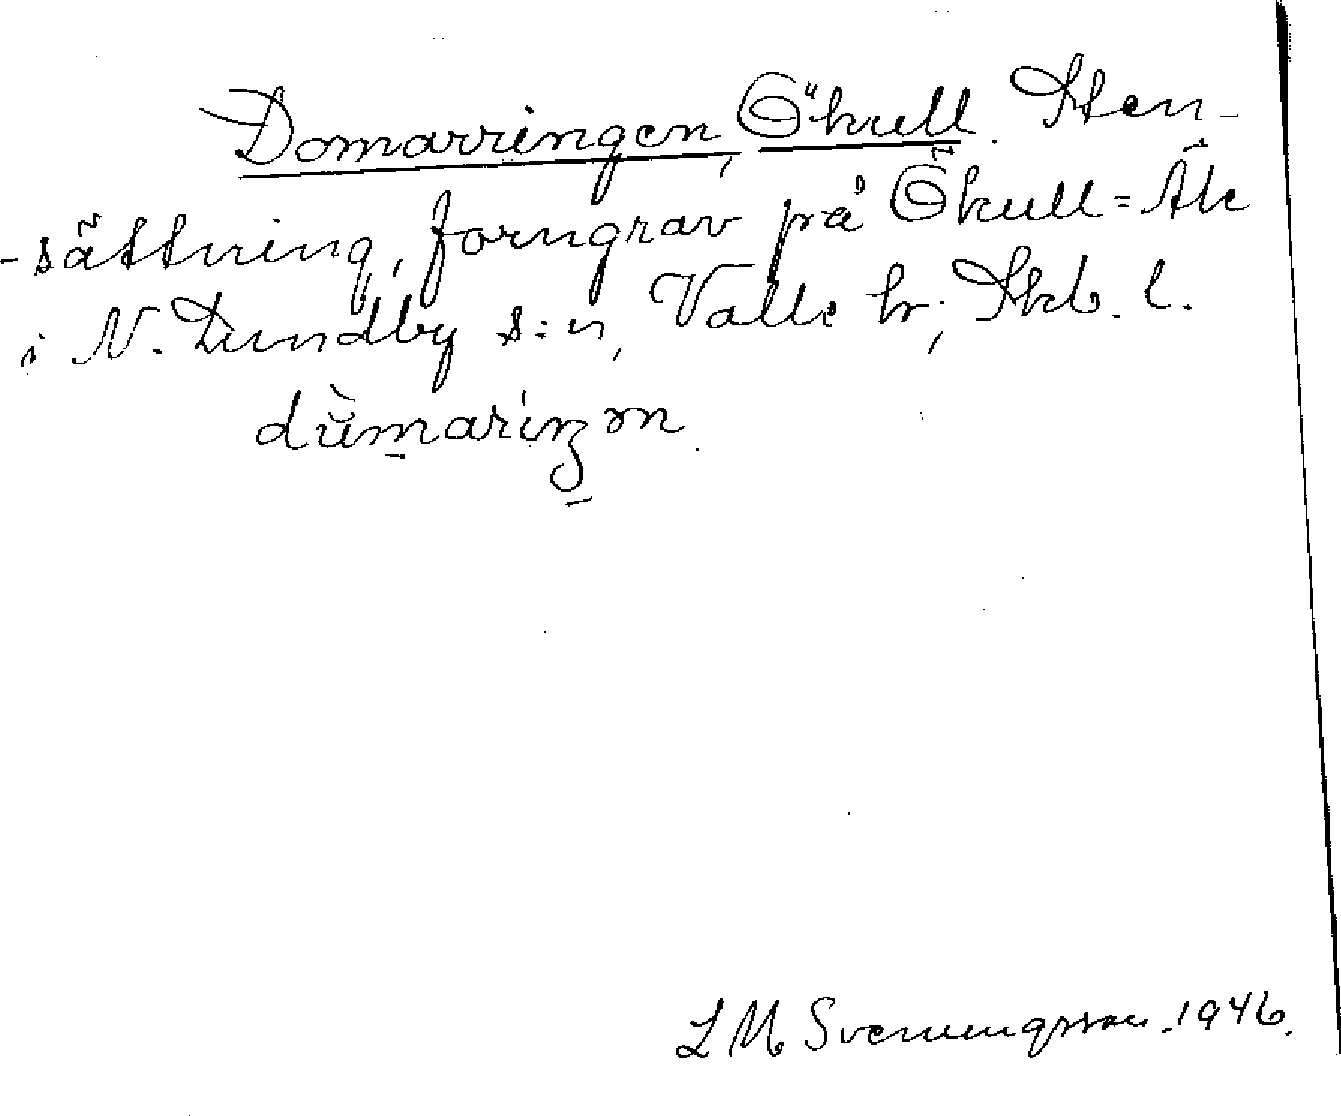 Domarringen, Ökull. Sten-
-sättning, forngrav på Ökull=Åk
i N. Lundby s:n, Valle hr; Skb. l.
dùmarinʒɘn.
L M Svenningsson. 1946.